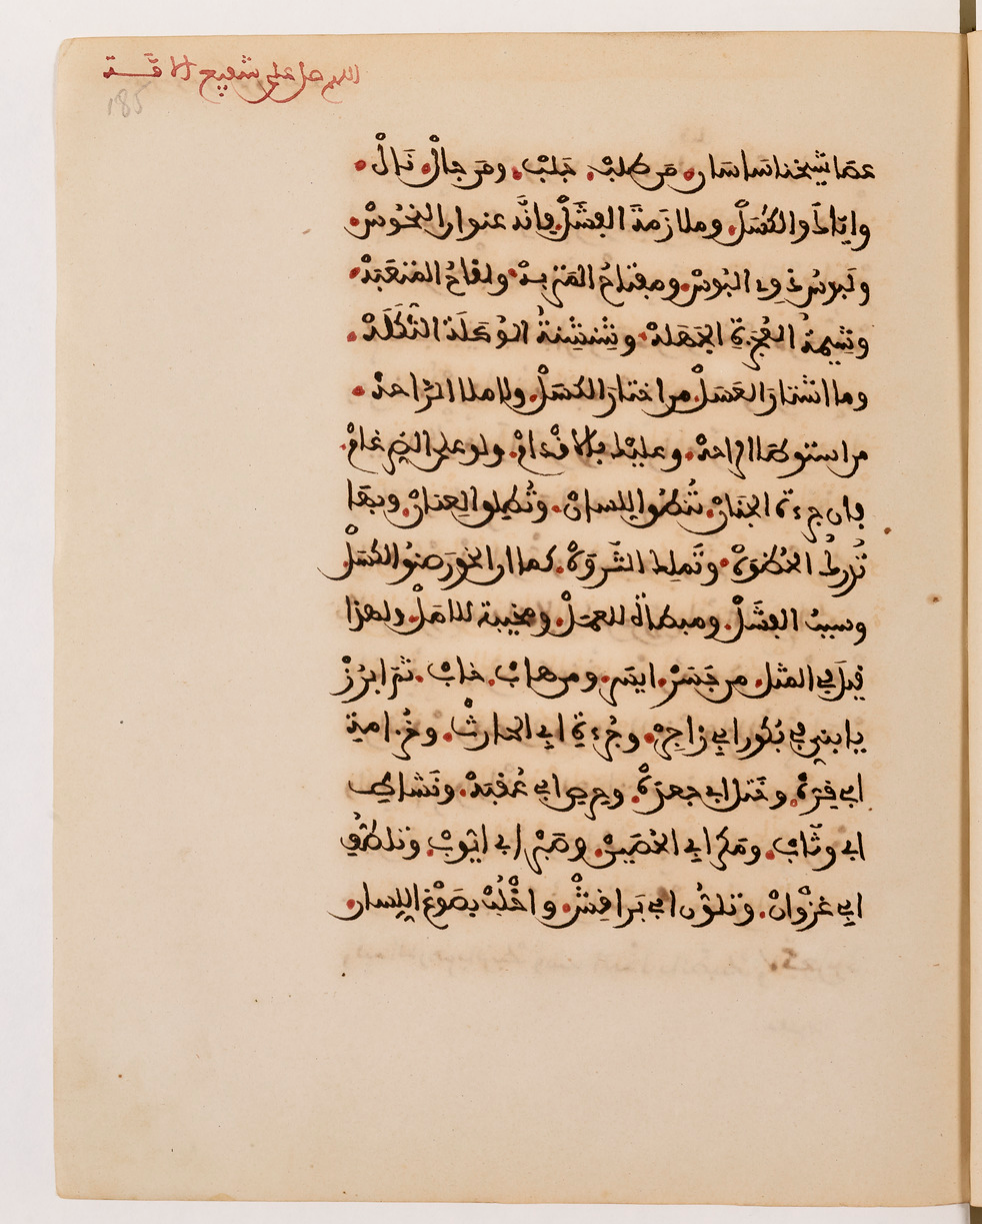 اللهم صل على شفيع الامة
185
عصا شيخنا ساسان. من طلب. جلب. ومن جال. نال.
واياك والكسل. وملازمة الفشل. فانه عنوان النحوس.
ولبوس ذوي البوس. ومفتاح المتربة. ولقاح المتعبة.
وشيمة العجزة الجهلة. وشنشنة الوكلة التكلة.
وما اشتار العسل. من اختار الكسل. ولا ملا الراحة.
من استوطا الراحة. وعليك بالاقدام. ولو على الضرغام.
فان جرءة الجنان. تنطق اللسان. وتطلق العنان. وبها
تدرك الحظوة. وتملك الثروة. كما ان الخور صنو الكسل
وسبب الفشل. ومبطاة للعمل. ومخيبة للامل. ولهذا
قيل في المثل. من جسر. ايسر. ومن هاب. خاب. ثم ابرز
يا بني في بكور ابي زاجر. وجرءة ابي الحارث. وحزامة
ابي قرة. وختل ابي جعدة. وحرص ابي عقبة. ونشاط
ابي وثاب. ومكر ابي الحصين. وصبر ابي ايوب. وتلطف
ابي غزوان. وتلون ابي براقش. واخلب بصوغ اللسان.